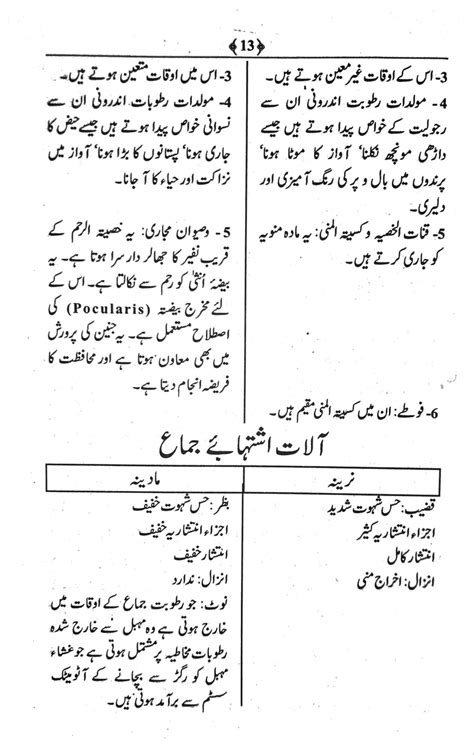 ﴿13﴾
3- اس کے اوقات غیر معین ہوتے ہیں۔
4 - مولدات رطوبت اندرونی' ان سے
رجولیت کے خواص پیدا ہوتے ہیں جیسے
داڑھی مونچھ نکلنا' آواز کا موٹا ہونا'
پرندوں میں بال و پر کی رنگ آمیزی اور
دلیری۔
5- قنات الخصیہ و کسیتہ المنی: یہ مادہ منویہ
کو جاری کرتے ہیں۔
6- فوطے: ان میں کسیتہ المنی مقیم ہیں۔
3- اس میں اوقات متعین ہوتے ہیں۔
4 - مولدات رطوبات اندرونی ان سے
نسوانی خواص پیدا ہوتے ہیں جیسے حیض کا
جاری ہونا' پستانوں کا بڑا ہونا' آواز میں
نزاکت اور حیاء کا آ جانا۔
5 - وصیوان مجاری: یہ خصیتہ الرحم کے
قریب نفیر کا جھالر دار سرا ہوتا ہے۔ یہ
بیضۂ اُنثیٰ کو رحم سے نکالتا ہے۔ اس کے
لئے مخرج بیضتہ (Pocularis) کی
اصطلاح مستعمل ہے۔ یہ جنین کی پرورش
میں بھی معاون ہوتا ہے اور محافظت کا
فریضہ انجام دیتا ہے۔
آلات اشتہائے جماع
نرینہ
قضیب: حس شہوت شدید
اجزاء انتشاریہ کثیر
انتشار کامل
انزال: اخراج منی
مادینہ
بظر: حس شہوت خفیف
اجزاء انتشاریہ خفیف
انتشار خفیف
انزال: ندارد
نوٹ: جو رطوبت جماع کے اوقات میں
خارج ہوتی ہے وہ مہبل سے خارج شدہ
رطوبات مخاطیہ پر مشتمل ہوتی ہے جو غشاء
مہبل کو رگڑ سے بچانے کے آٹومیٹک
سسٹم سے برآمد ہوتی ہیں۔